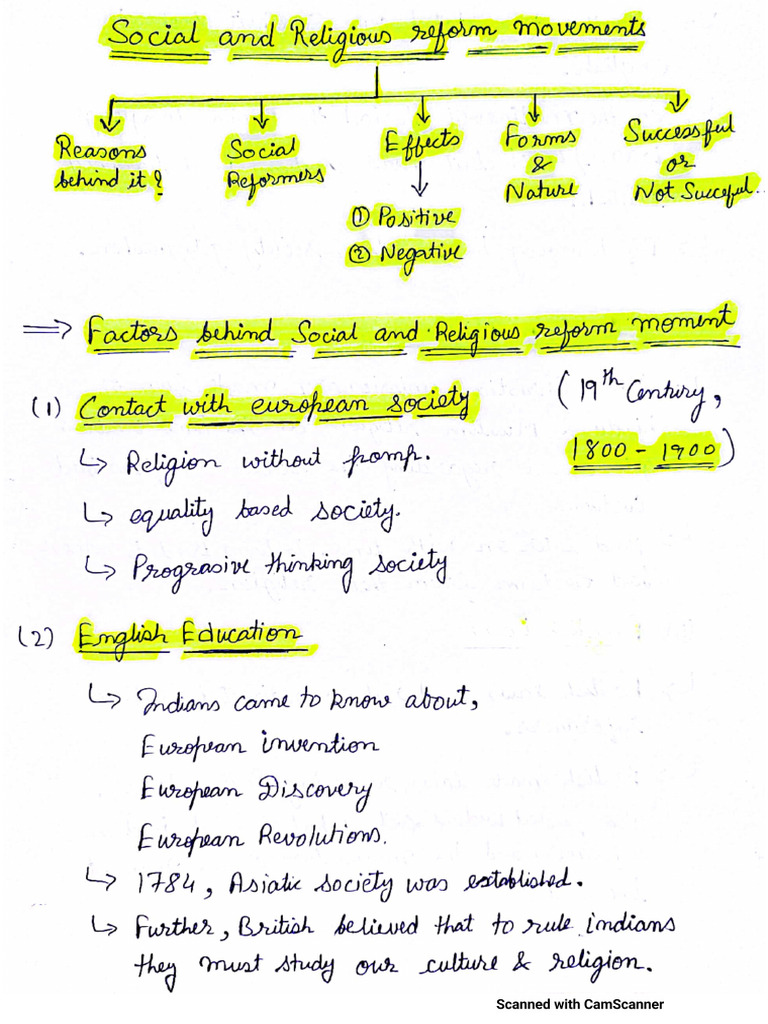 Social and Religious reform movements
Reasons behind it?
Social Reformers
Effects
① Positive
② Negative
Forms & Nature
Successful or Not Succeful.
⇒ Factors behind Social and Religious reform moment
(19th Century, 1800 - 1900)
(1) Contact with european society
↳ Religion without pomp.
↳ equality based society.
↳ Prograsive thinking society
(2) English Education
↳ Indians came to know about,
European invention
European Discovery
European Revolutions.
↳ 1784, Asiatic society was established.
↳ Further, British believed that to rule indians
they must study our culture & religion.
Scanned with CamScanner